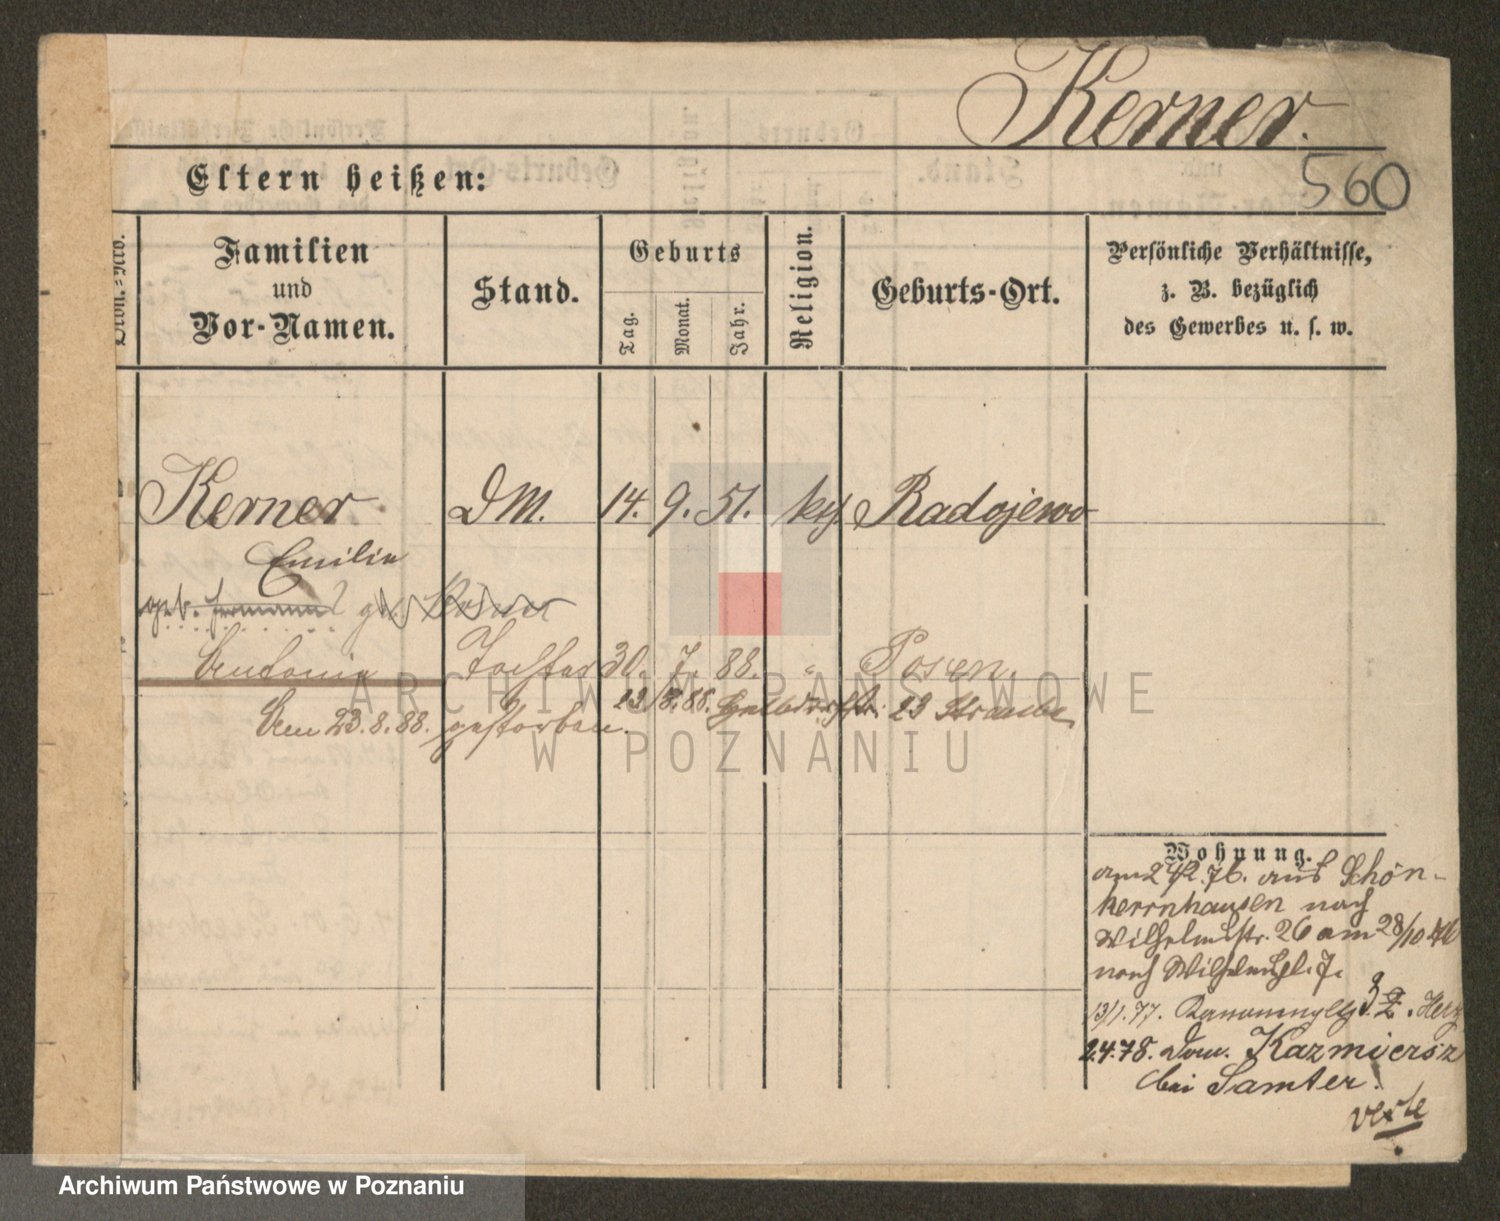 Kerner.
560
Eltern heißen:
Ordn.-Nro.
Familien
und
Vor-Namen.
Stand.
Geburts
Tag.
Monat.
Jahr.
Religion.
Geburts-Ort.
Persönliche Verhältnisse,
z. B. bezüglich
des Gewerbes u. s. w.
Kerner DM. 14. 9. 51. kth Radojewo
Emilie
geb. Hermann
Antonie Tochter 30. 7. 88. " Posen.
13/8.88. Halbdorfstr. 23 Straube
Am 23.8.88. gestorben.
Wohnung.
am 24/2.76. aus Schön-
herrnhausen nach
Wilhelmstr. 26 am 28/10 76
nach Wilhelmspl. 7.
13/1.77. Kanonenpl. 3
2.4.78. Dom. Kazmiersz
bei Samter.
verte
ARCHIWUM PAŃSTWOWE
W POZNANIU
Archiwum Państwowe w Poznaniu